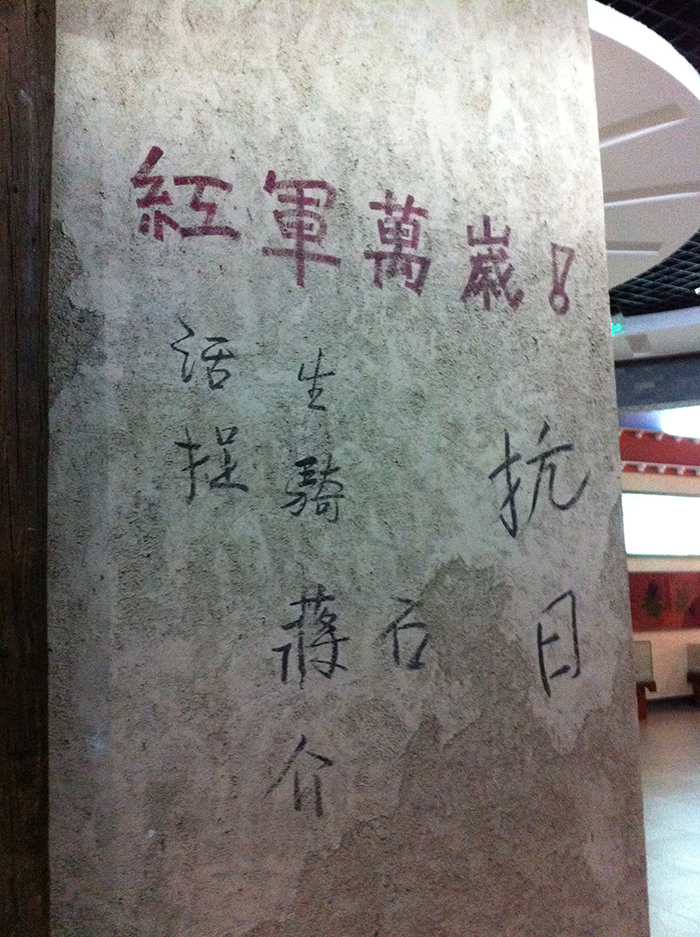 紅軍萬歲！
活捉
生騎
蔣介
石
抗日